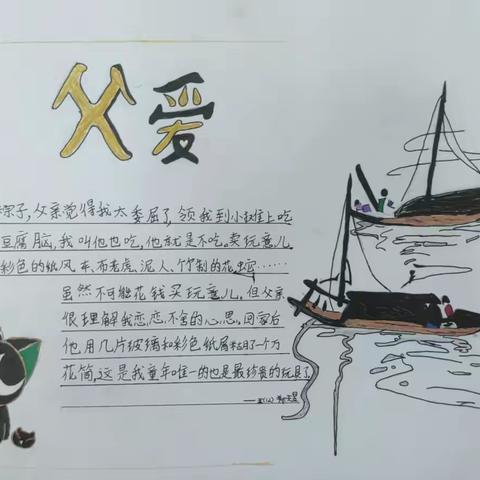 父爱
粽子,父亲觉得我太委屈了,领我到小摊上吃
豆腐脑,我叫他也吃,他就是不吃。卖玩意儿
彩色的纸风车、布老虎、泥人、竹制的花蛇……
虽然不可能花钱买玩意儿,但父亲
很理解我恋恋不舍的心思,回家后
他用几片玻璃和彩色纸屑粘了一个万
花筒,这是我童年唯一的也是最珍贵的玩具了